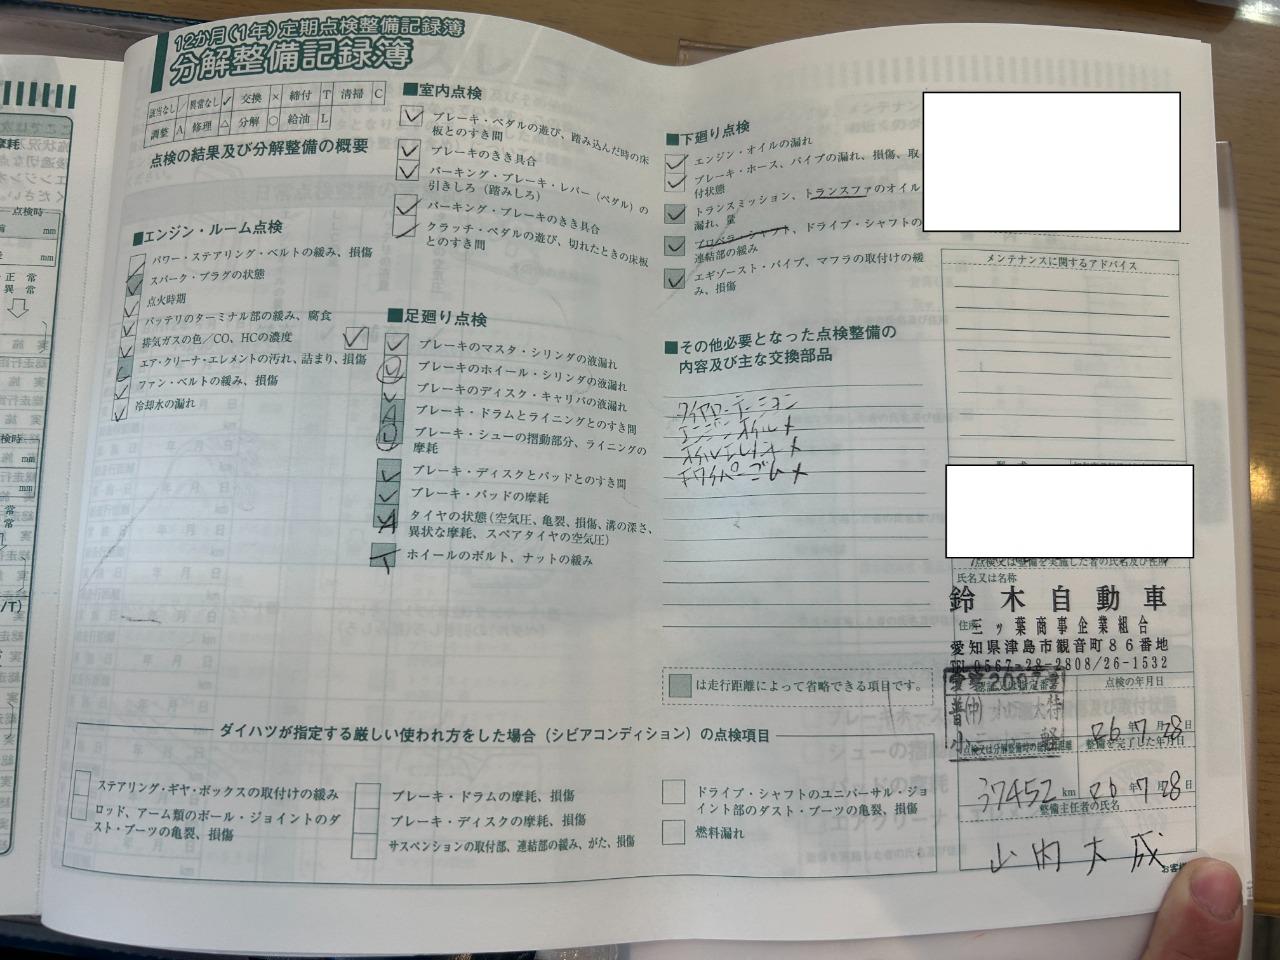 12か月(1年)定期点検整備記録簿
分解整備記録簿
該当なし / 異常なし ✓ 交換 × 締付 T 清掃 C
調整 A 修理 △ 分解 ○ 給油 L
点検の結果及び分解整備の概要
■エンジン・ルーム点検
パワー・ステアリング・ベルトの緩み、損傷
スパーク・プラグの状態
点火時期
バッテリのターミナル部の緩み、腐食
排気ガスの色/CO、HCの濃度
エア・クリーナ・エレメントの汚れ、詰まり、損傷
ファン・ベルトの緩み、損傷
冷却水の漏れ
■室内点検
ブレーキ・ペダルの遊び、踏み込んだ時の床
板とのすき間
ブレーキのきき具合
パーキング・ブレーキ・レバー(ペダル)の
引きしろ(踏みしろ)
パーキング・ブレーキのきき具合
クラッチ・ペダルの遊び、切れたときの床板
とのすき間
■足廻り点検
ブレーキのマスタ・シリンダの液漏れ
ブレーキのホイール・シリンダの液漏れ
ブレーキのディスク・キャリパの液漏れ
ブレーキ・ドラムとライニングとのすき間
ブレーキ・シューの摺動部分、ライニングの
摩耗
ブレーキ・ディスクとパッドとのすき間
ブレーキ・パッドの摩耗
タイヤの状態(空気圧、亀裂、損傷、溝の深さ、
異状な摩耗、スペアタイヤの空気圧)
ホイールのボルト、ナットの緩み
■下廻り点検
エンジン・オイルの漏れ
ブレーキ・ホース、パイプの漏れ、損傷、取
付状態
トランスミッション、トランスファのオイル
漏れ、量
プロペラ・シャフト、ドライブ・シャフトの
連結部の緩み
エギゾースト・パイプ、マフラの取付けの緩
み、損傷
■その他必要となった点検整備の
内容及び主な交換部品
タイヤローテーション
エンジンオイル×
オイルエレメント×
ワイパーゴム×
は走行距離によって省略できる項目です。
メンテナンスに関するアドバイス
点検又は整備を実施した者の氏名及び住所
氏名又は名称
鈴木自動車
住所
三ッ葉商事企業組合
愛知県津島市観音町86番地
TEL 0567-28-2808/26-1532
点検の年月日
26年7月28日
整備を完了した年月日
37452 km
26年7月28日
整備主任者の氏名
山内大成
ダイハツが指定する厳しい使われ方をした場合(シビアコンディション)の点検項目
ステアリング・ギヤ・ボックスの取付けの緩み
ロッド、アーム類のボール・ジョイントのダ
スト・ブーツの亀裂、損傷
ブレーキ・ドラムの摩耗、損傷
ブレーキ・ディスクの摩耗、損傷
サスペンションの取付部、連結部の緩み、がた、損傷
ドライブ・シャフトのユニバーサル・ジョ
イント部のダスト・ブーツの亀裂、損傷
燃料漏れ